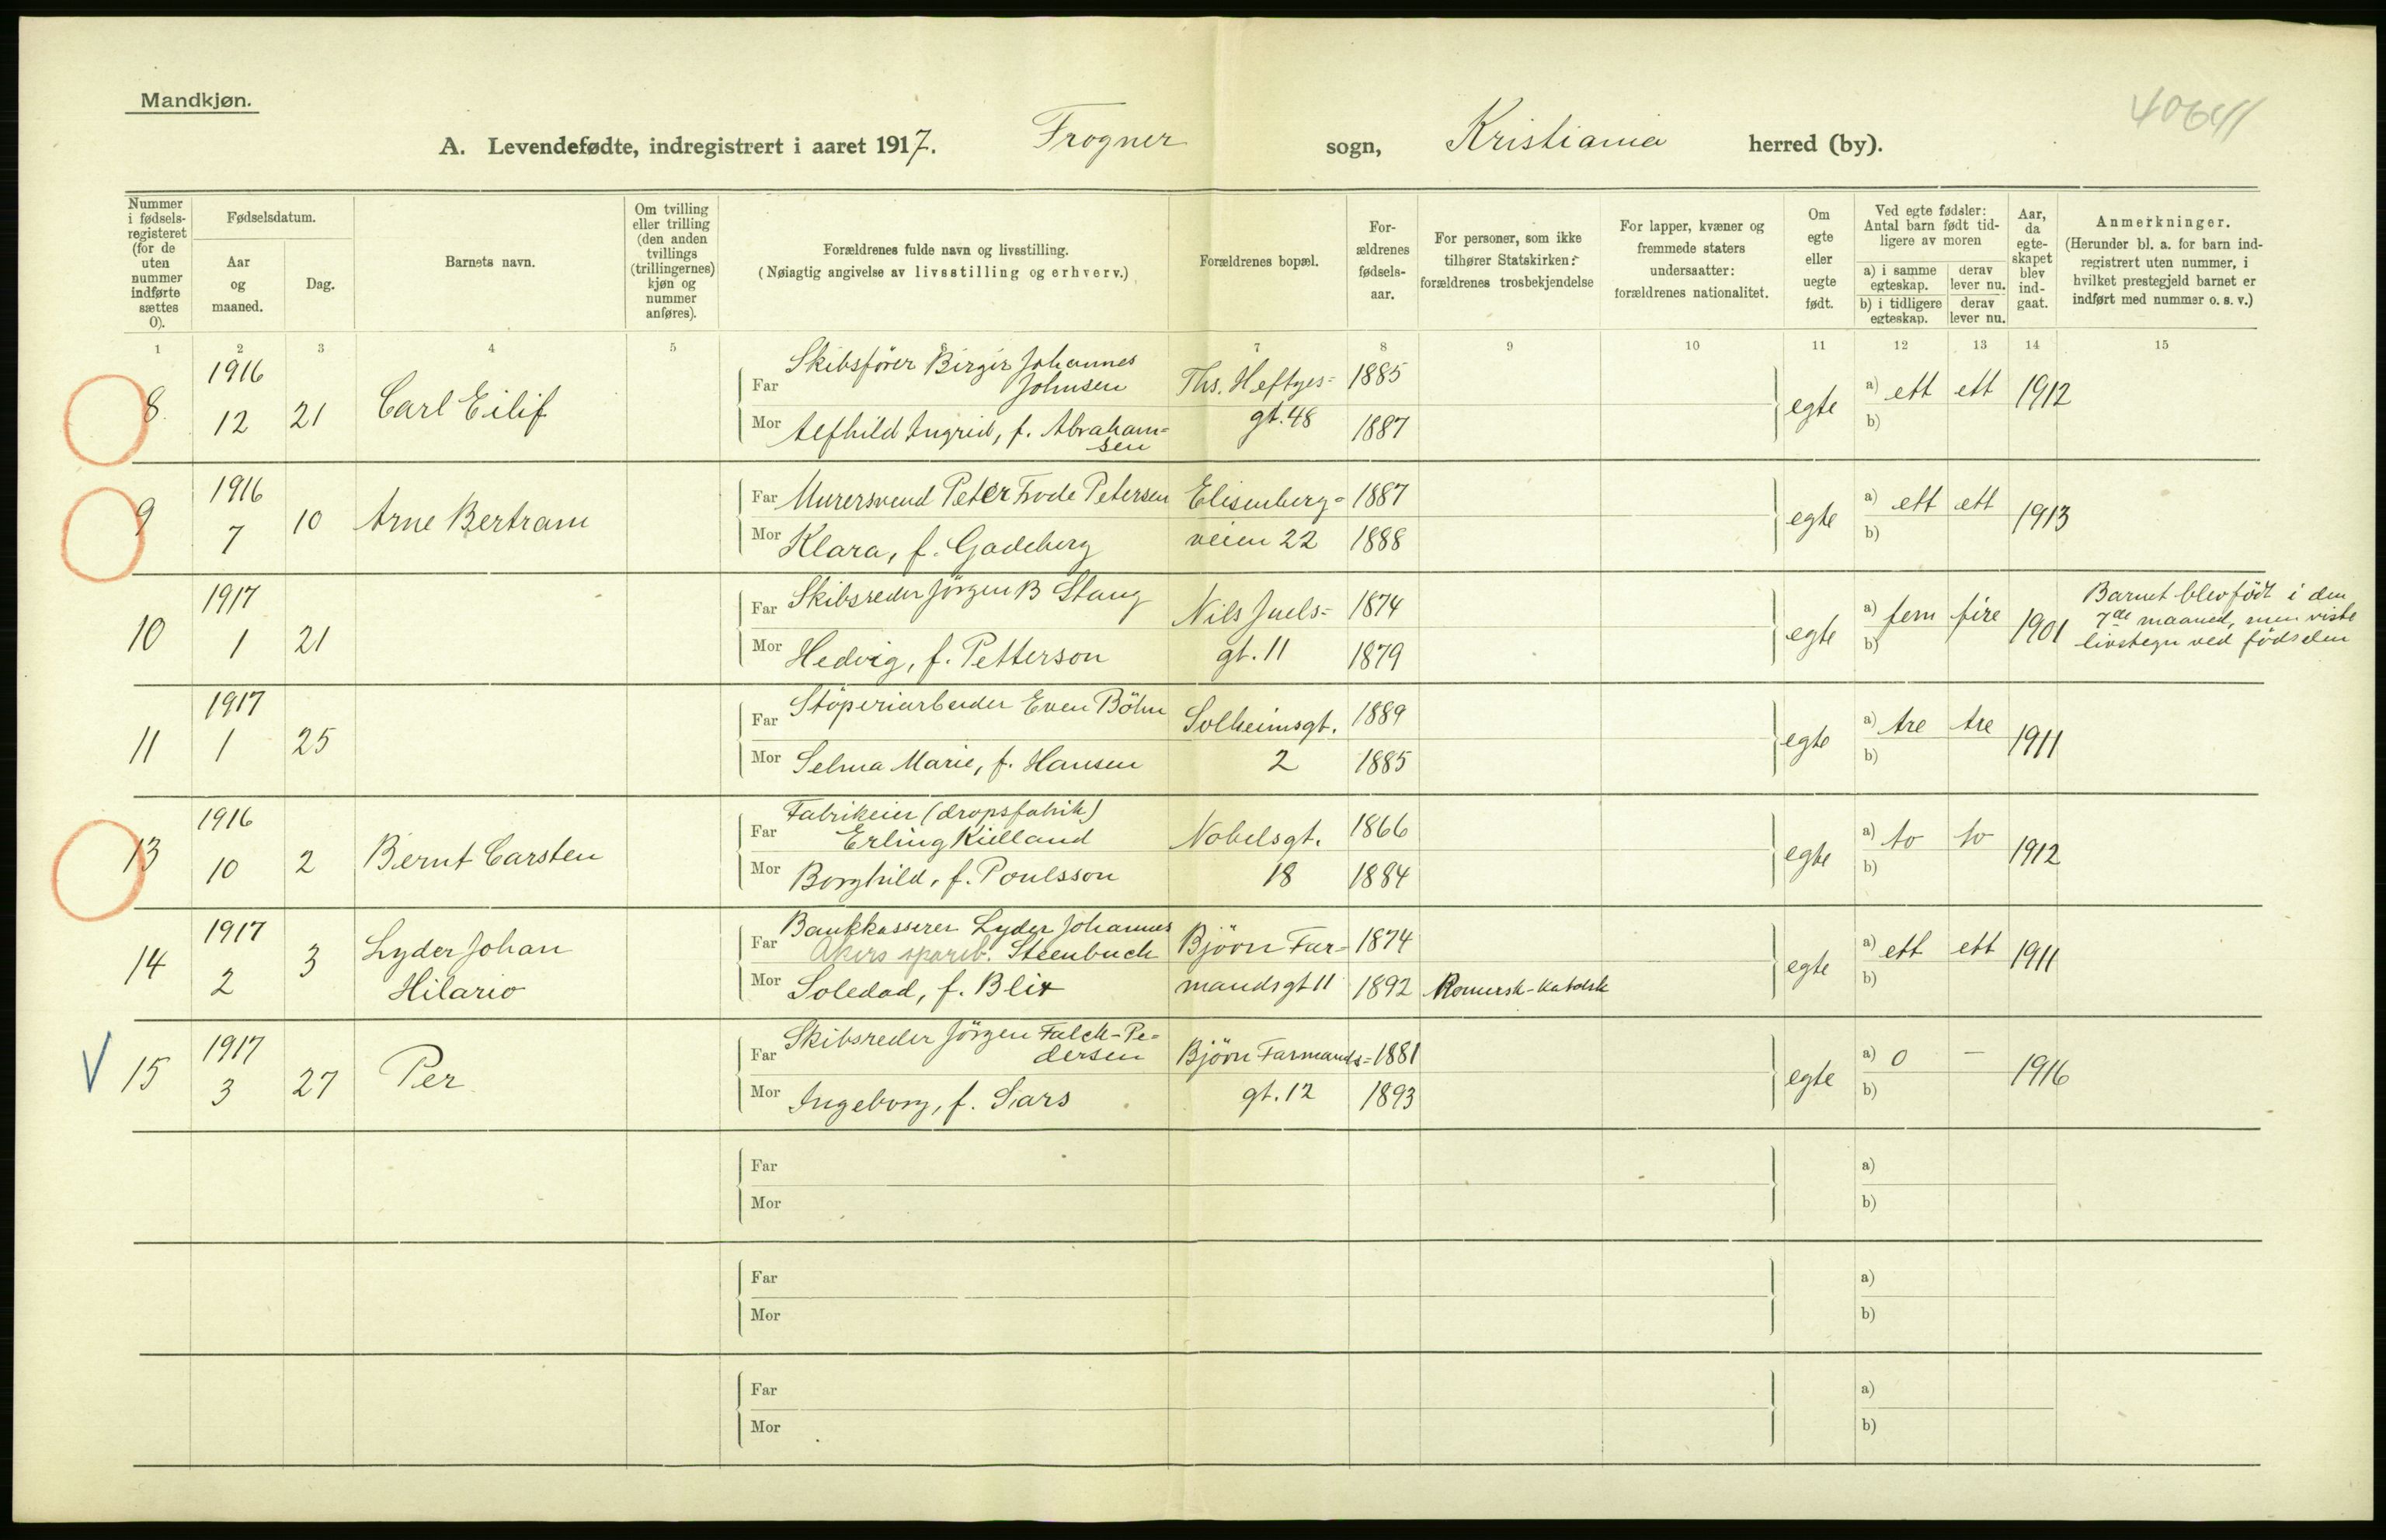 Mandkjøn.
40641
A. Levendefødte, indregistrert i aaret 1917. Frogner sogn, Kristiania herred (by).
Nummer i fødsels-registeret (for de uten nummer indførte sættes 0).
Fødselsdatum.
Aar og maaned.
Dag.
Barnets navn.
Om tvilling eller trilling (den anden tvillings (trillingernes) kjøn og nummer anføres).
Forældrenes fulde navn og livsstilling.
(Nøiagtig angivelse av livsstilling og erhverv.)
Forældrenes bopæl.
For-ældrenes fødsels-aar.
For personer, som ikke tilhører Statskirken: forældrenes trosbekjendelse
For lapper, kvæner og fremmede staters undersaatter: forældrenes nationalitet.
Om egte eller uegte født.
Ved egte fødsler: Antal barn født tid-ligere av moren
a) i samme egteskap.
derav lever nu.
b) i tidligere egteskap.
derav lever nu.
Aar, da egte-skapet blev ind-gaat.
Anmerkninger.
(Herunder bl. a. for barn ind-registrert uten nummer, i hvilket prestegjeld barnet er indført med nummer o. s. v.)
1 2 3 4 5 6 7 8 9 10 11 12 13 14 15
8. 1916 12 21 Carl Eilif
Far Skibsfører Birger Johannes Johnsen Ths. Heftyes= 1885
Mor Alfhild Ingrid, f. Abraham=sen gt. 48 1887
egte a) ett ett 1912
b)
9 1916 7 10 Arne Bertram
Far Murersvend Peter Frode Petersen Elisenberg= 1887
Mor Klara, f. Gadeberg veien 22 1888
egte a) ett ett 1913
b)
10 1917 1 21
Far Skibsreder Jörgen B Stang Nils Juels= 1874
Mor Hedvig, f. Petterson gt. 11 1879
egte a) fem fire 1901
b)
Barnet blev födt i den
7de maaned, men viste
livstegn ved födselen
11 1917 1 25
Far Stöperiarbeider Even Böhn Solheimsgt. 1889
Mor Selma Marie, f. Hansen 2 1885
egte a) tre tre 1911
b)
13 1916 10 2 Bernt Carsten
Far Fabrikeier (dropsfabrik) Erling Kielland Nobelsgt. 1866
Mor Borghild, f. Poulsson 18 1884
egte a) to to 1912
b)
14 1917 2 3 Lyder Johan Hilario
Far Bankkasserer Lyder Johannes
Akers spareb. Steenbuch Björn Far= 1874
Mor Soledad, f. Blix mandsgt 11 1892 Romersk-katolsk
egte a) ett ett 1911
b)
V 15 1917 3 27 Per
Far Skibsreder Jörgen Falck-Pe=dersen Björn Farmands= 1881
Mor Ingeborg, f. Sars gt. 12 1893
egte a) 0 — 1916
b)
Far a)
Mor b)
Far a)
Mor b)
Far a)
Mor b)